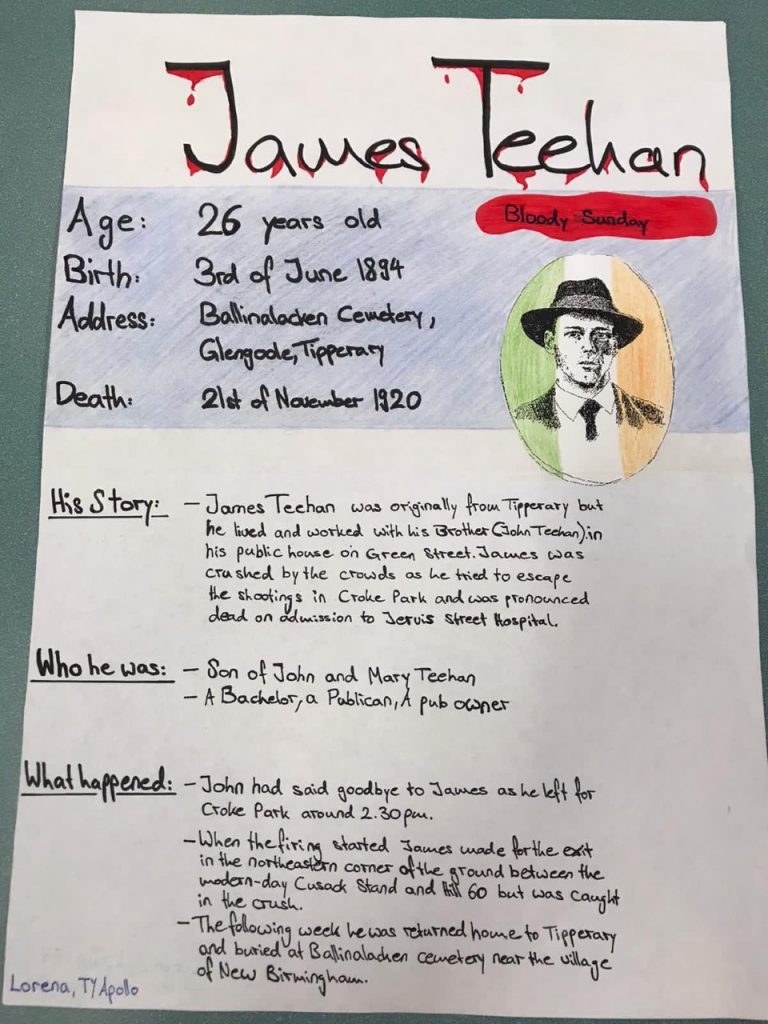 James Teehan
Bloody Sunday
Age: 26 years old
Birth: 3rd of June 1894
Address: Ballinalacken Cemetery,
Glengoole, Tipperary
Death: 21st of November 1920
His Story: – James Teehan was originally from Tipperary but
he lived and worked with his Brother (John Teehan) in
his public house on Green Street. James was
crushed by the crowds as he tried to escape
the shootings in Croke Park and was pronounced
dead on admission to Jervis Street Hospital.
Who he was: – Son of John and Mary Teehan
– A Bachelor, a Publican, A pub owner
What happened: – John had said goodbye to James as he left for
Croke Park around 2.30pm.
– When the firing started James made for the exit
in the northeastern corner of the ground between the
modern-day Cusack Stand and Hill 60 but was caught
in the crush.
– The following week he was returned home to Tipperary
and buried at Ballinalacken cemetery near the village
of New Birmingham.
Lorena, TY Apollo